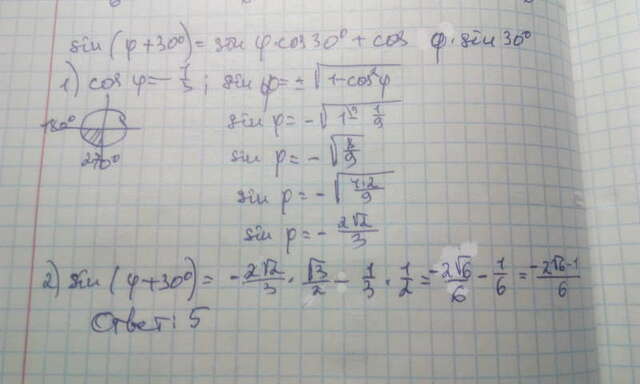 sin (φ+30°) = sin φ·cos30° + cos φ·sin 30°
1) cos φ = -1/3 ; sin φ = ± √(1-cos²φ)
180°
270°
sin φ = - √(1 - 1/9)
sin φ = - √(8/9)
sin φ = - √(4·2/9)
sin φ = - 2√2/3
2) sin (φ+30°) = - 2√2/3 · √3/2 - 1/3 · 1/2 = -2√6/6 - 1/6 = -2√6-1/6
Ответ: 5